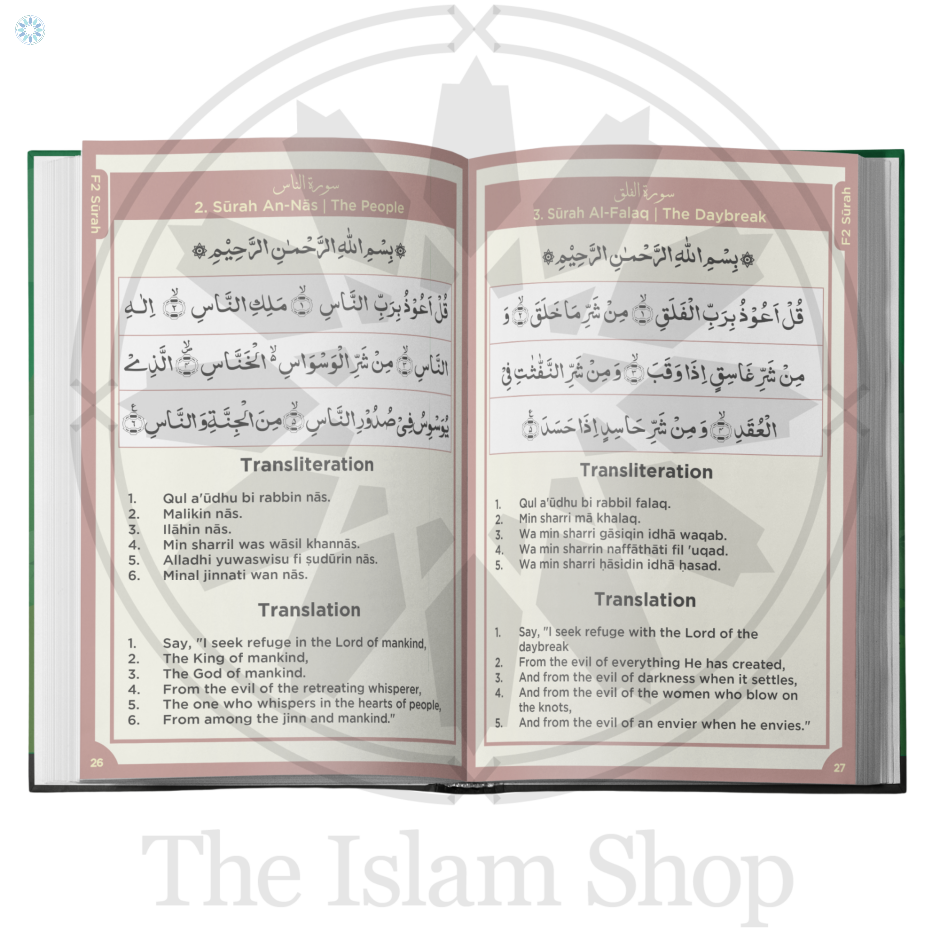 F2 Sūrah
سورة الناس
2. Sūrah An-Nās | The People
بِسْمِ اللهِ الرَّحْمٰنِ الرَّحِيْمِ
قُلْ اَعُوْذُ بِرَبِّ النَّاسِ ۙ﴿۱﴾ مَلِكِ النَّاسِ ۙ﴿۲﴾ اِلٰهِ
النَّاسِ ۙ﴿۳﴾ مِنْ شَرِّ الْوَسْوَاسِ ۙ الْخَنَّاسِ ۪ۙ﴿۴﴾ الَّذِيْ
يُوَسْوِسُ فِيْ صُدُوْرِ النَّاسِ ۙ﴿۵﴾ مِنَ الْجِنَّةِ وَ النَّاسِ ﴿۶﴾
Transliteration
1. Qul a'ūdhu bi rabbin nās.
2. Malikin nās.
3. Ilāhin nās.
4. Min sharril was wāsil khannās.
5. Alladhi yuwaswisu fi ṣudūrin nās.
6. Minal jinnati wan nās.
Translation
1. Say, "I seek refuge in the Lord of mankind,
2. The King of mankind,
3. The God of mankind.
4. From the evil of the retreating whisperer,
5. The one who whispers in the hearts of people,
6. From among the jinn and mankind."
26
F2 Sūrah
سورة الفلق
3. Sūrah Al-Falaq | The Daybreak
بِسْمِ اللهِ الرَّحْمٰنِ الرَّحِيْمِ
قُلْ اَعُوْذُ بِرَبِّ الْفَلَقِ ۙ﴿۱﴾ مِنْ شَرِّ مَا خَلَقَ ۙ﴿۲﴾ وَ
مِنْ شَرِّ غَاسِقٍ اِذَا وَقَبَ ۙ﴿۳﴾ وَ مِنْ شَرِّ النَّفّٰثٰتِ فِي
الْعُقَدِ ۙ﴿۴﴾ وَ مِنْ شَرِّ حَاسِدٍ اِذَا حَسَدَ ﴿۵﴾
Transliteration
1. Qul a'ūdhu bi rabbil falaq.
2. Min sharri mā khalaq.
3. Wa min sharri gāsiqin idhā waqab.
4. Wa min sharrin naffāthāti fil 'uqad.
5. Wa min sharri ḥāsidin idhā ḥasad.
Translation
1. Say, "I seek refuge with the Lord of the
daybreak
2. From the evil of everything He has created,
3. And from the evil of darkness when it settles,
4. And from the evil of the women who blow on
the knots,
5. And from the evil of an envier when he envies."
27
The Islam Shop